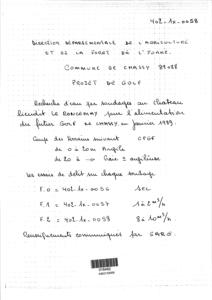 402-1x-0058
DIRECTION DÉPARTEMENTALE DE L'AGRICULTURE
ET DE LA FORET DE L'YONNE.
COMMUNE DE CHASSY 89088
PROJET DE GOLF
Recherche d'eau par sondages au chateau
lieudit LE RONCEMAY pour l'alimentation
du futur GOLF de CHASSY en janvier 1989.
Coupe des terrains suivant CPGF
de 0 à 20m Argile
de 20 à → Craie ± argileuse
Les essais de débit sur chaque sondage
F.0 = 402-1x-0056 SEC
F.1 = 402-1x-0057 1 à 2 m³/h
F.2 = 402-1x-0058 8 à 10 m³/h
Renseignements communiqués par